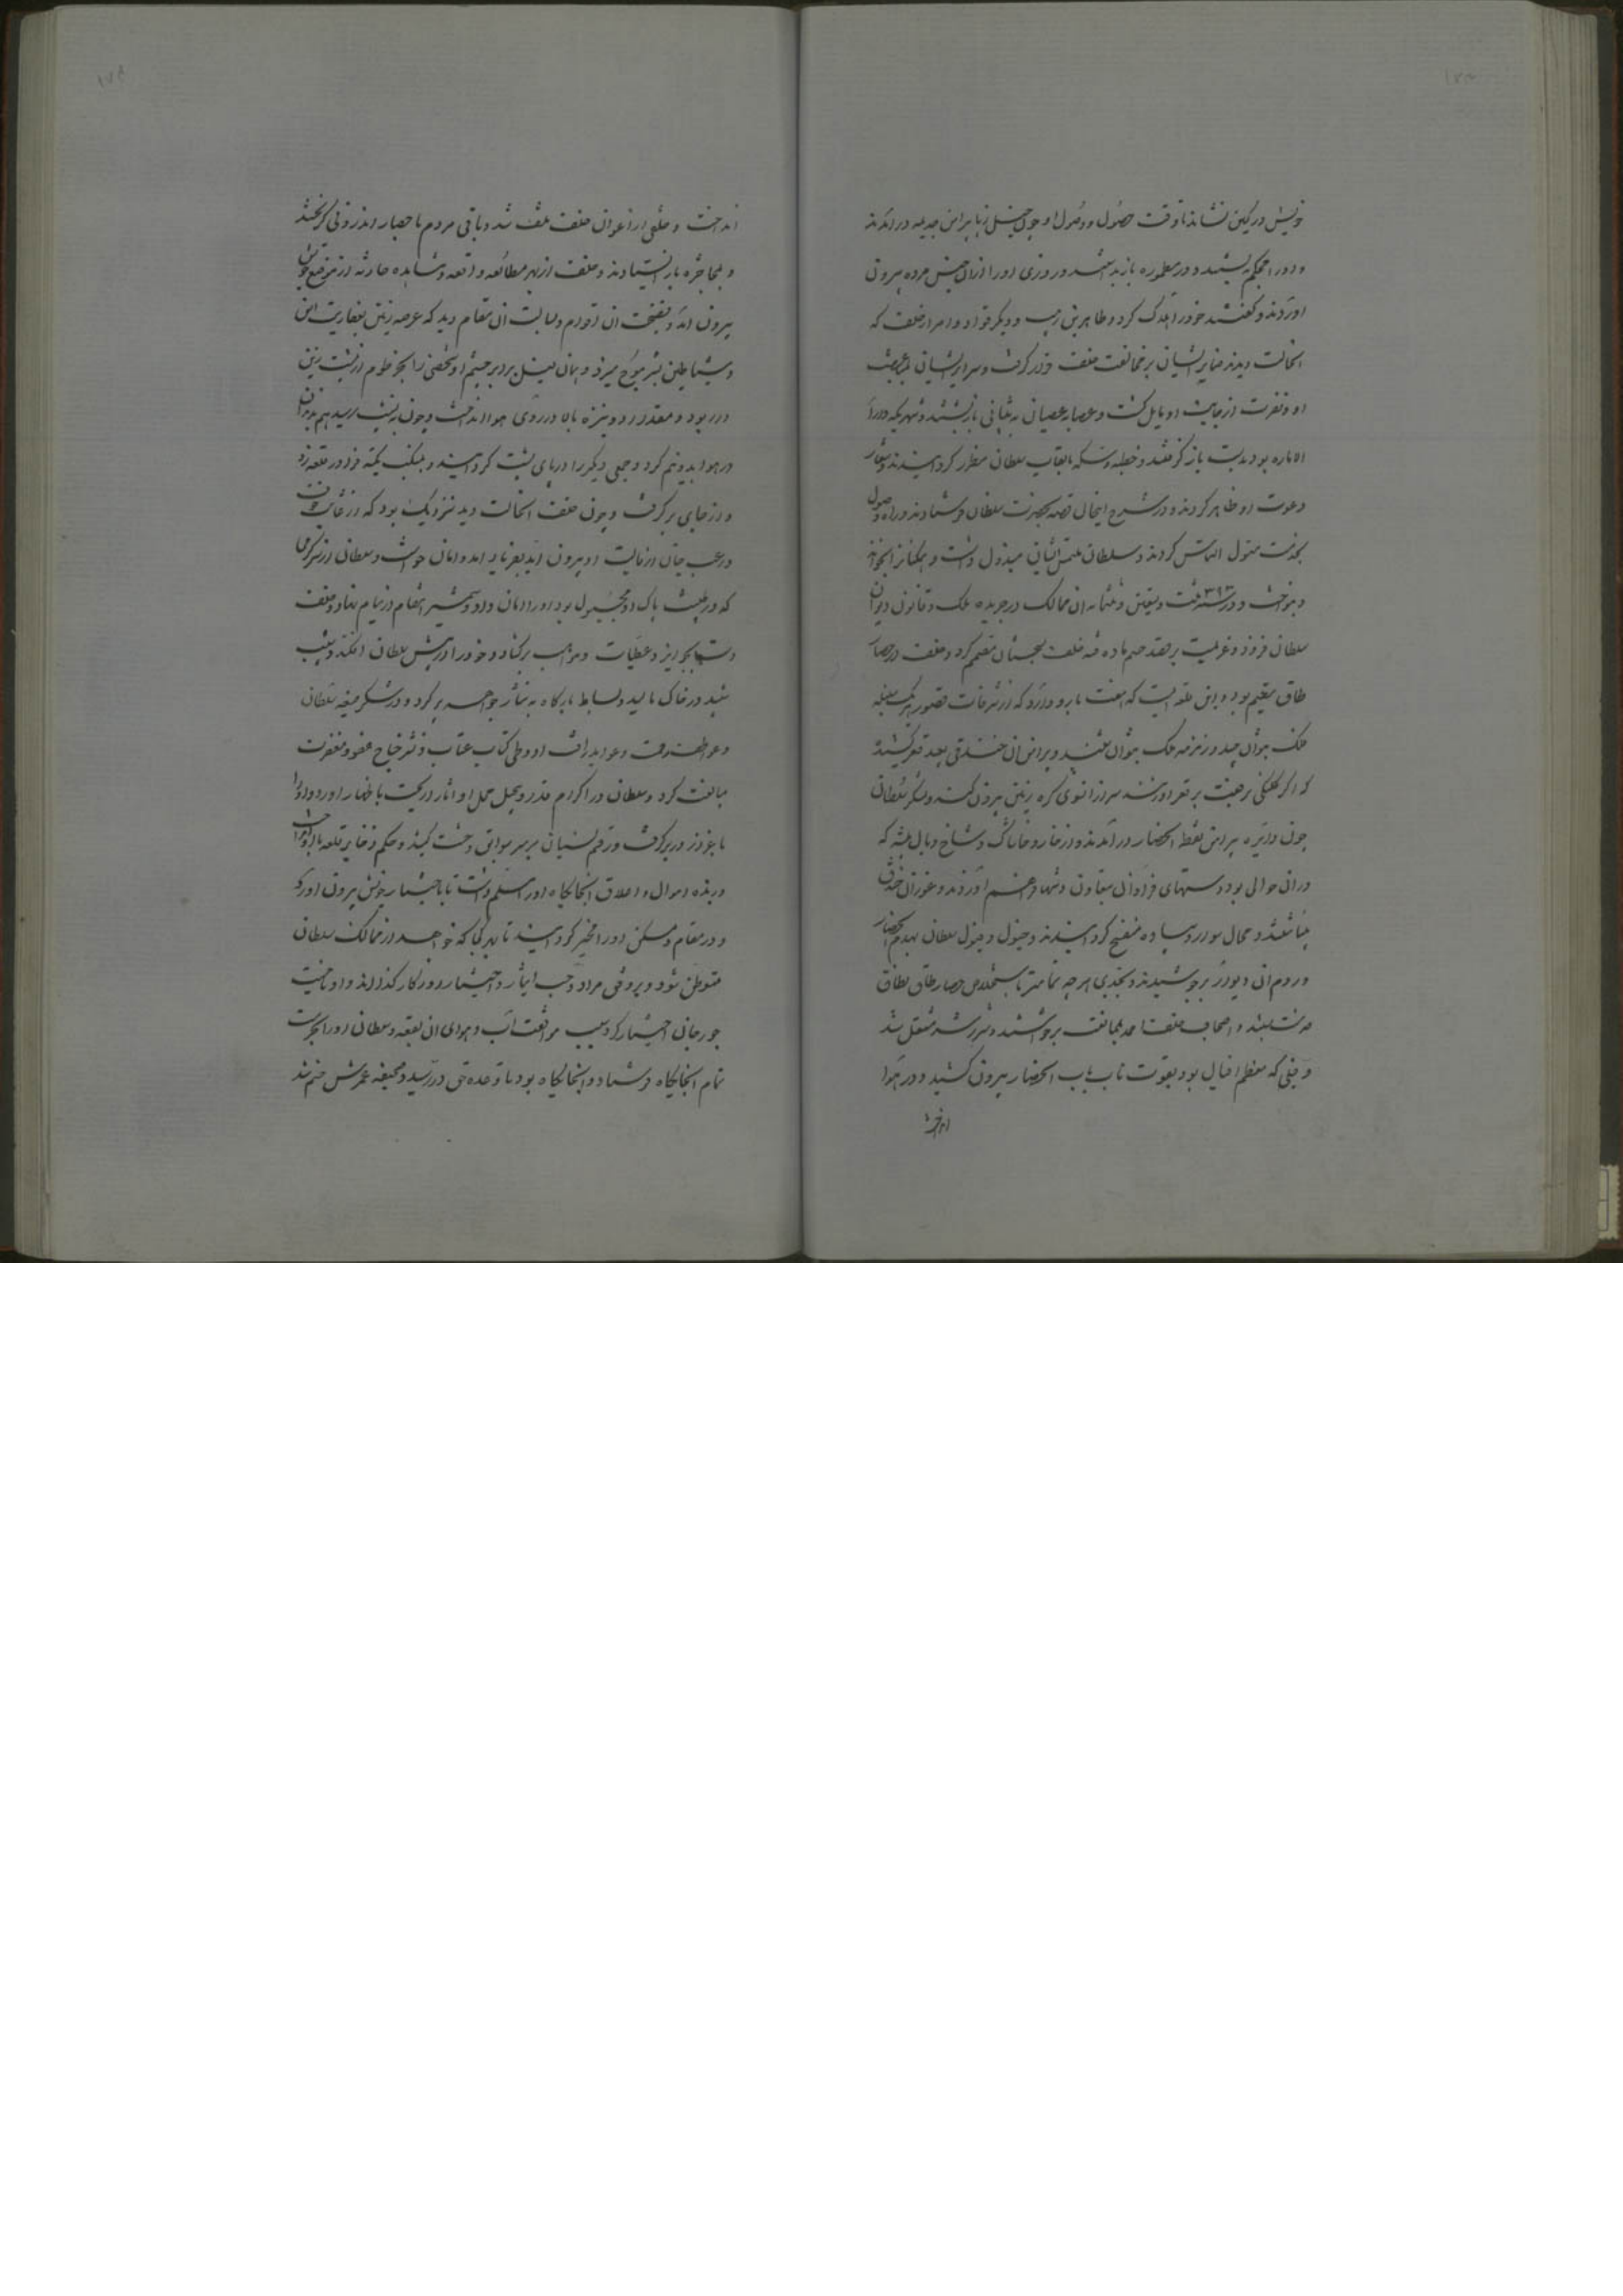 خویش در کمین نشاند تا وقت حصول و وصول او چون خیل زبا پیرامن جذیمه درآمدند
و او را محکم ببستند و در مطموره باز داشتند و روزی او را ازان حبس مرده بیرون
آوردند و گفتند خود را هلاک کرد و طاهر بن زینب و دیگر قواد و امرا خلف که
انحالت دیدند ضمایر ایشان بر مخالفت خلف قرار گرفت و سرایر ایشان
او و نفرت از جانب او مایل گشت و عصابه عصیان به پیشانی باز بستند و شهر که دار
الاماره بود بدست باز گرفتند و خطبه و سکه بالقاب سلطان مطرز گردانیدند و شعار
دعوت او ظاهر کردند و در شرح اینحال قصه بحضرت سلطان فرستادند و راه وصول
بخدمت التماس کردند و سلطان ملتمس ایشان مبذول داشت و همگنانرا بخواند
و بنواخت و در سنه ۳۹۳ ثلث و تسعین و ثلثمایه آن ممالک در جریده ملک و قانون دیوان
سلطان فزود و عزیمت بر قصد حسم ماده فتنه خلف بسجستان مصمم کرد و خلف در حصار
طاق مقیم بود و این قلعه ایست که هفت بارو دارد که از شرفات قصور
ملک بتوان چید و زمزمه ملک بتوان شنید و پیرامن آن خندقی بعید قعر کشیده
که اگر بر قعر او سر از انسوی کره زمین بیرون کند و لشکر سلطان
چون دایره پیرامن نقطه الحصار درآمدند و از خار و خاشاک و شاخ و بال بیشه که
دران حوالی بود دستهای فراوان بتعاون و فراهم آوردند و غور ان خندق
بینباشتند و مجال سوار و پیاده منفسح گردانیدند و خیول و فیول سلطان بهدم حصار
و روم ان دیوار بر جوشیدند و بجدی هرچه تمامتر باستخلاص حصار طاق نطاق
بستند و اصحاب خلف بممانعت برخاستند و شرر شر مشتعل شد
و فیلی که معظم افیال بود بقوت ناب باب الحصار بیرون کشید و در هوا
انداخت
انداخت و خلقی از اعوان خلف تلف شد و باقی مردم با حصار اندرونی گریختند
و بمحاجزه باز ایستادند و خلف از بهر مطالعه واقعه و مشاهده حادثه از موضع خواص
بیرون آمد و بفضخت ان اقوام و لباب ان مقام دید که عرصه زمین بعفاریت انس
و شیاطین بشر موج میزد و همان فیل برابر چشم او شخصی را بخرطوم از پشت زین
در ربود و مقدار دو نیزه بالا در روی هوا انداخت و چون به پشت رسید هم بدندان
در هوا بدو نیم کرد و جمعی دیگر را در پای پست گردانید و بمنکب تکیه فرا در قلعه زد
و از جای برگرفت و چون خلف انحالت دید نزدیک بود که از غایت خوف
و رعب جان از قالب او بیرون آید بفریاد آمد و امان خواست و سلطان از سر کرمی
که در طینت پاک او مجبول بود او را امان داد و شمشیر انتقام در نیام نهاد و خلف
دست بجرایز و عطیات و مواهب برگشاد و خود را در پیش سلطان افگند و شیب
سپید در خاک مالید و بساط بارگاه به نثار جواهر پر کرد و در شکر صنیعه سلطان
و عواطف و عواید رافت او و طی کتاب عتاب و نشر جناح عفو و مغفرت
مبالغت کرد و سلطان در اکرام قدر و تبجیل محل او اثار اریحیت باظهار آورد و او را
باعزاز در بر گرفت و رقم نسیان بر سر سوابق وحشت کشید و حکم ذخایر قلعه با او گذاشت
و بذه اموال و اعلاق انجایگاه او را مسلم داشت تا باختیار خویش بیرون آورد
و در مقام و مسکن او را مخیر گردانید تا بهر کجا که خواهد از ممالک سلطان
متوطن شود و بر وفق مراد و حسب ایثار و اختیار روزگار گذراند و او ناحیت
جوزجان اختیار کرد بسبب موافقت آب و هوای ان بقعه و سلطان او را بحرمت
تمام انجایگاه فرستاد و انجایگاه بود تا وعده حق در رسید و صحیفه عمرش ختم شد